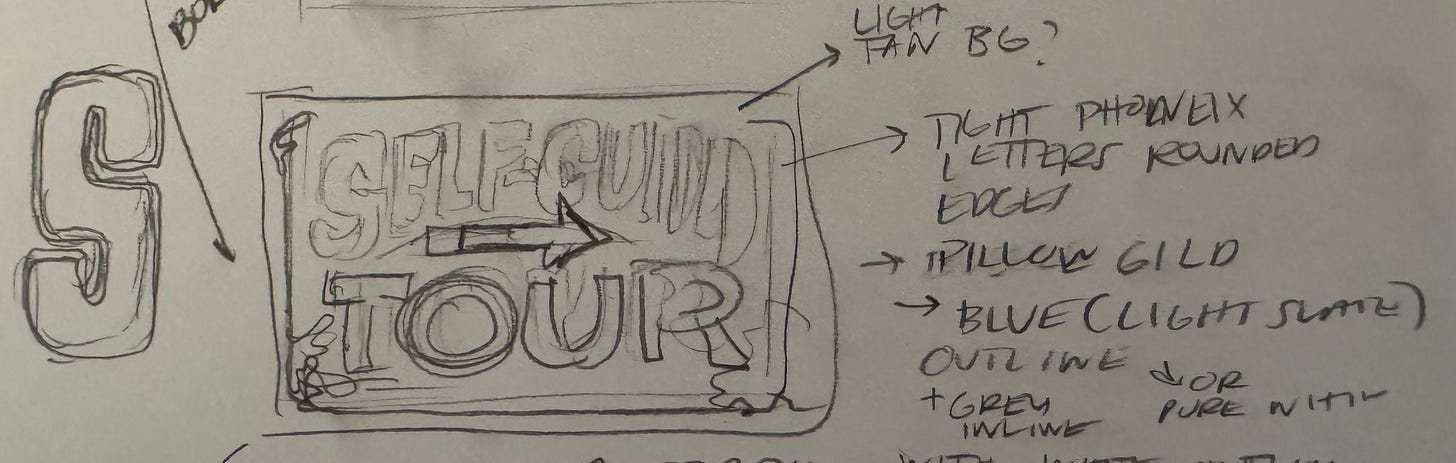 S
LIGHT
TAN BG?
SELF-GUID
TOUR
TIGHT PHOENEIX
LETTERS ROUNDED
EDGES
→ PILLOW GILD
→ BLUE (LIGHT SLATE)
OUTLINE
OR
+ GREY
PURE
INLINE